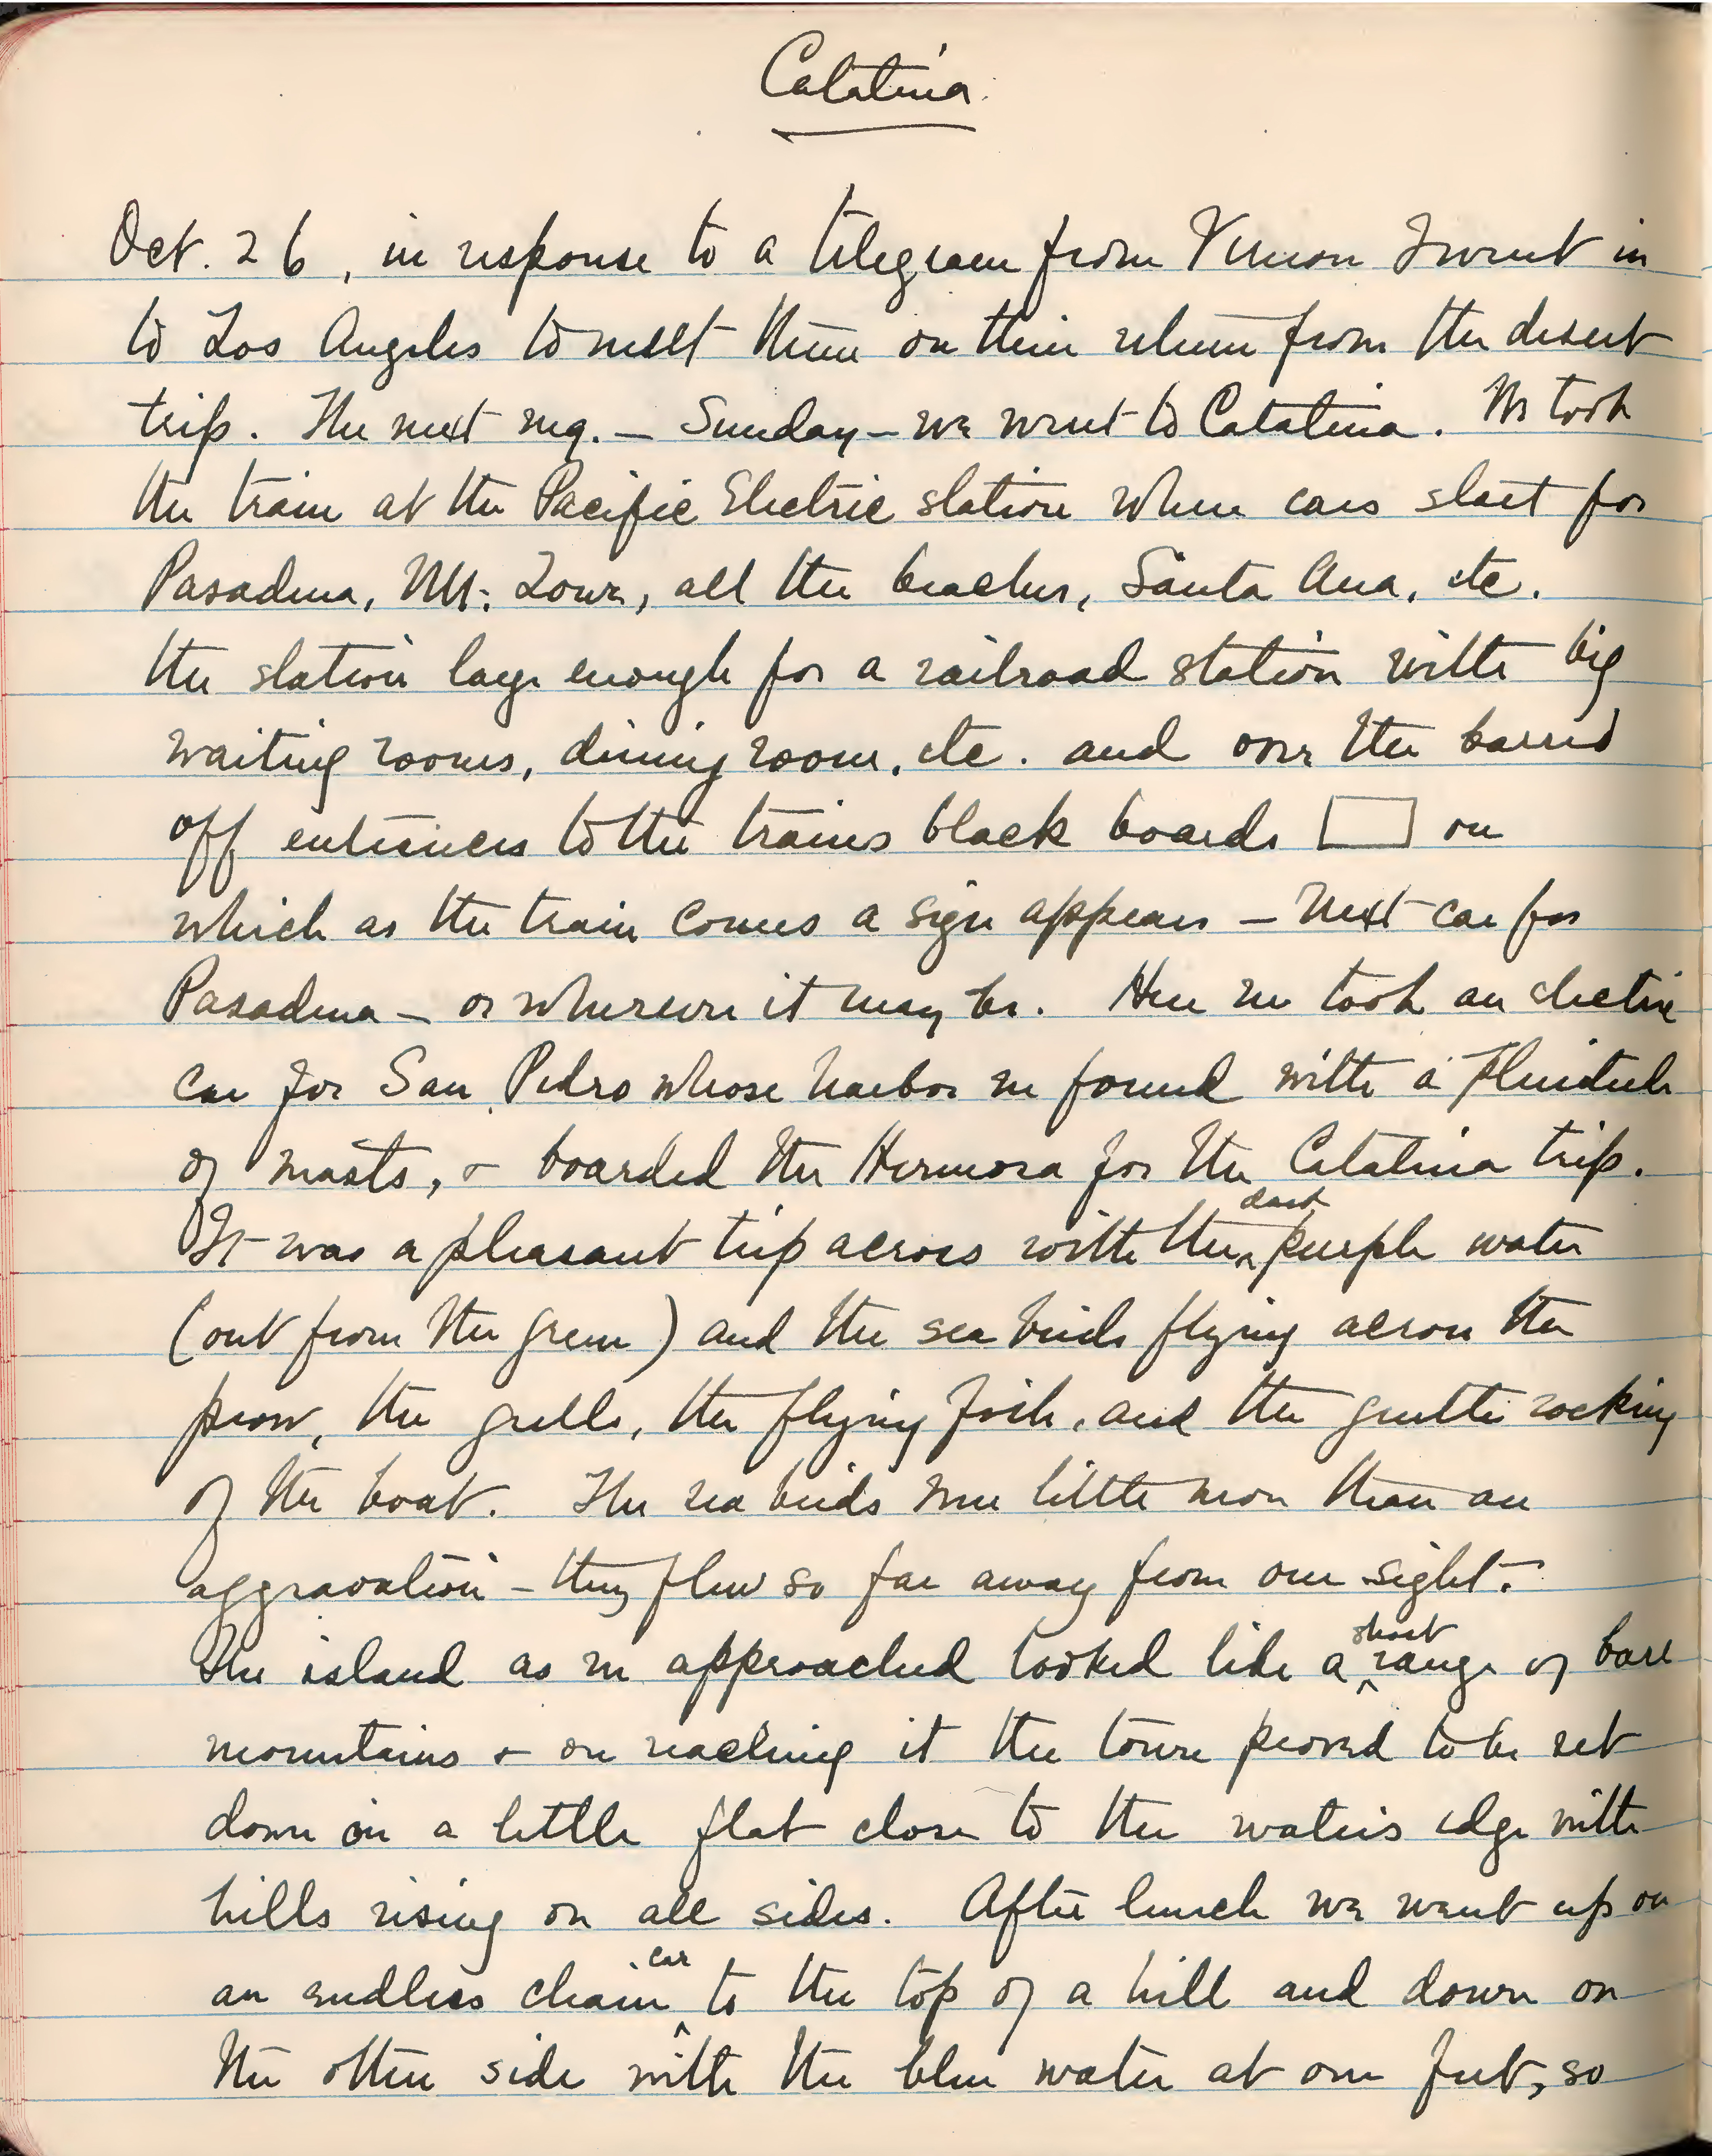 Catalina.
Oct. 26, in response to a telegram from Vernon I went in
to Los Angeles to meet them on their return from the desert
trip. The next mg. — Sunday — we went to Catalina. We took
the train at the Pacific Electric station where cars start for
Pasadena, Mt. Lowe, all the beaches, Santa Ana, etc.
the station large enough for a railroad station with big
waiting rooms, dining room, etc. and over the barred
off entrances to the trains black boards on
which as the train comes a sign appears — Next car for
Pasadena — or wherever it may be. Here we took an electric
car for San Pedro whose harbor we found with a plenitude
of masts, & boarded the Hermosa for the Catalina trip.
It was a pleasant trip across with the dark purple water
(out from the green) and the sea birds flying across the
prow, the gulls, the flying fish, and the gentle rocking
of the boat. The sea birds were little more than an
aggravation — they flew so far away from our sight.
The island as we approached looked like a short range of bare
mountains & on reaching it the town proved to be set
down on a little flat close to the water's edge with
hills rising on all sides. After lunch we went up on
an endless chain car to the top of a hill and down on
the other side with the blue water at our feet, so